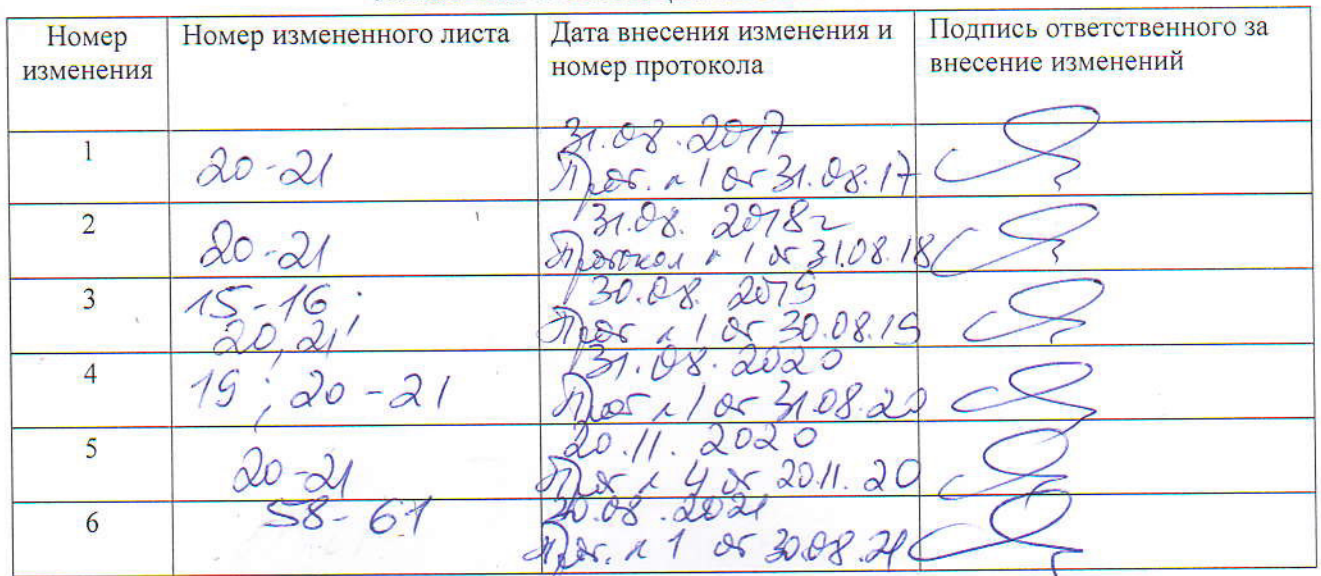 Номер изменения
Номер измененного листа
Дата внесения изменения и номер протокола
Подпись ответственного за внесение изменений
1
20-21
31.08.2017
Прот. № 1 от 31.08.17
2
20-21
31.08.2018г
Протокол № 1 от 31.08.18
3
15-16;
20,21
30.08.2019
Прот № 1 от 30.08.19
4
19; 20-21
31.08.2020
Прот № 1 от 31.08.20
5
20-21
20.11.2020
Прот № 4 от 20.11.20
6
58-61
30.08.2021
Прот. № 1 от 30.08.21